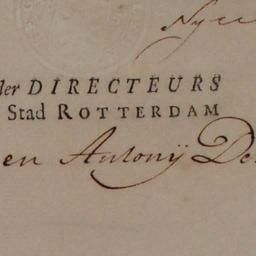 der DIRECTEURS
Stad ROTTERDAM
en Antonij De